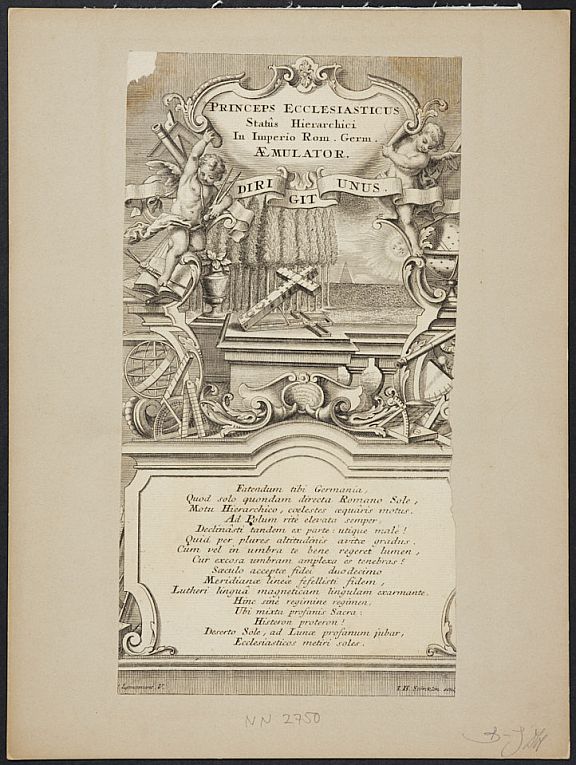 PRINCEPS ECCLESIASTICUS
Statûs Hierarchici
In Imperio Rom. Germ.
ÆMULATOR.
DIRIGIT UNUS.
Fatendum tibi Germania,
Quod solo quondam directa Romano Sole,
Motu Hierarchico, cœlestes æquâris motus.
Ad Polum rite elevata semper,
Declinâsti tandem ex parte: utique malé!
Quid per plures altitudinis avitæ gradus.
Cum vel in umbra te bene regeret lumen,
Cur excosa umbram amplexa es tenebras!
Sæculo acceptæ fidei duodecimo
Meridianæ lineæ fefellisti fidem,
Lutheri linguâ magneticam lingulam exarmante.
Hinc sine regimine regimen,
Ubi mixta profanis Sacra:
Histeron proteron!
Deserto Sole, ad Lunæ profanum jubar,
Ecclesiasticos metiri soles.
I. H.
NN 2750